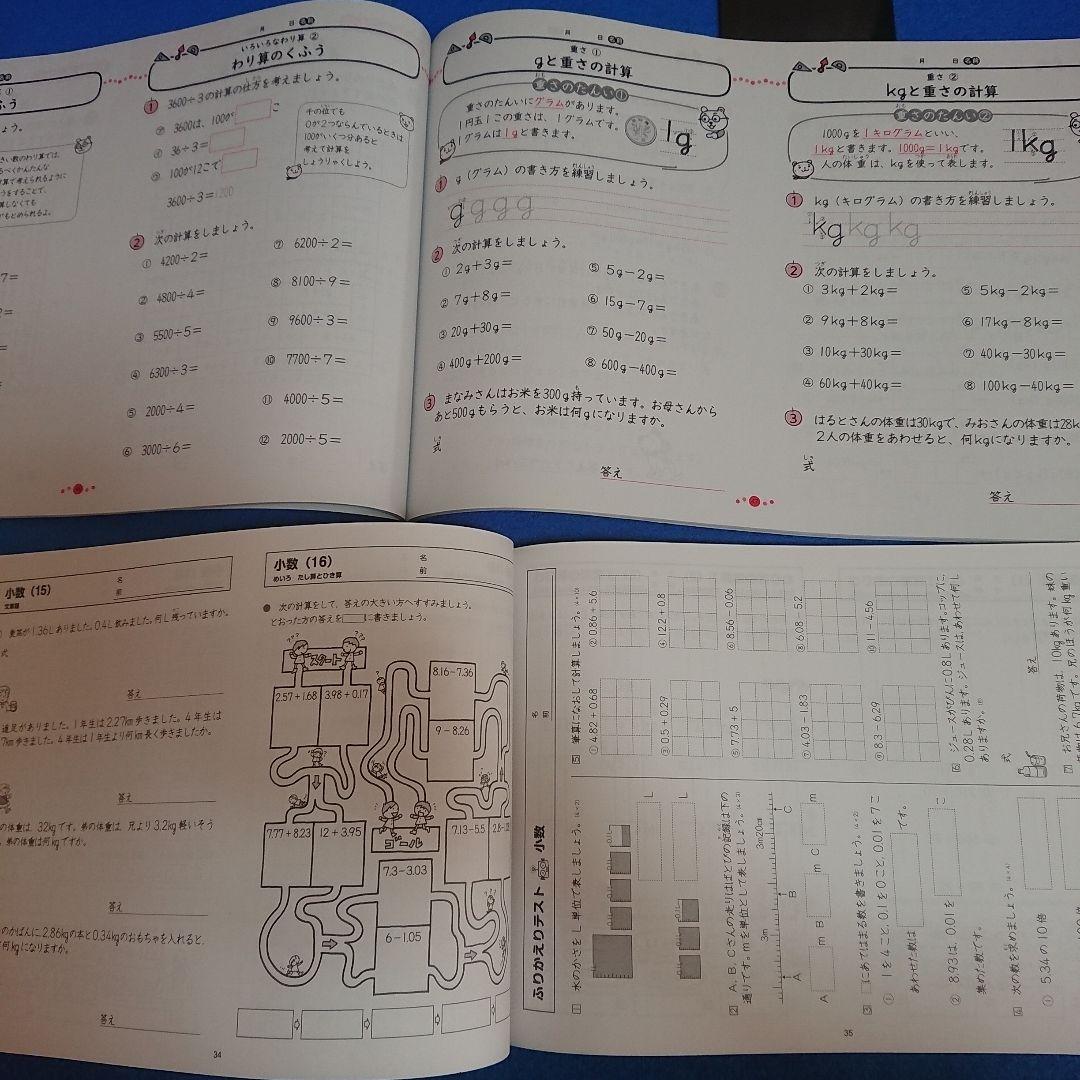 月 日 名前
いろいろなわり算 ②
わり算のくふう
1 3600÷3の計算の仕方を考えましょう。
㋐ 3600は、100が こ
㋑ 36÷3=
㋒ 100が12こで
3600÷3=1200
千の位でも
0が2つならんでいるときは
100がいくつ分あると
考えて計算を
しょうりゃくしよう。
2 次の計算をしましょう。
① 4200÷2=
② 4800÷4=
③ 5500÷5=
④ 6300÷3=
⑤ 2000÷4=
⑥ 3000÷6=
⑦ 6200÷2=
⑧ 8100÷9=
⑨ 9600÷3=
⑩ 7700÷7=
⑪ 4000÷5=
⑫ 2000÷5=
月 日 名前
重さ ①
gと重さの計算
重さのたんい①
重さのたんいにグラムがあります。
1円玉1この重さは、1グラムです。
1グラムは1gと書きます。
1g
1 g(グラム)の書き方を練習しましょう。
g g g g
2 次の計算をしましょう。
① 2g+3g=
② 7g+8g=
③ 20g+30g=
④ 400g+200g=
⑤ 5g-2g=
⑥ 15g-7g=
⑦ 50g-20g=
⑧ 600g-400g=
3 まなみさんはお米を300g持っています。お母さんから
あと500gもらうと、お米は何gになりますか。
式
答え
月 日 名前
重さ ②
kgと重さの計算
重さのたんい②
1000gを1キログラムといい、
1kgと書きます。1000g=1kgです。
人の体重は、kgを使って表します。
1kg
1 kg(キログラム)の書き方を練習しましょう。
kg kg kg
2 次の計算をしましょう。
① 3kg+2kg=
② 9kg+8kg=
③ 10kg+30kg=
④ 60kg+40kg=
⑤ 5kg-2kg=
⑥ 17kg-8kg=
⑦ 40kg-30kg=
⑧ 100kg-40kg=
3 はるとさんの体重は30kgで、みおさんの体重は28k
2人の体重をあわせると、何kgになりますか。
式
答え
小数(15)
文章題
名前
1.36Lありました。0.4L飲みました。何L残っていますか。
式
答え
遠足がありました。1年生は2.27km歩きました。4年生は
7km歩きました。4年生は1年生より何km長く歩きましたか。
答え
の体重は 32kgです。弟の体重は 兄より3.2kg軽いそう
。弟の体重は何kgですか。
答え
のかばんに、2.86kgの本と0.34kgのおもちゃを入れると、
何kgになりますか。
答え
小数(16)
めいろ たし算とひき算
名前
● 次の計算をして、答えの大きい方へすすみましょう。
とおった方の答えを に書きましょう。
スタート
2.57+1.68
3.98+0.17
8.16-7.36
9-8.26
7.77+8.23
12+3.95
ゴール
7.13-5.5
7.3-3.03
6-1.05
34
名前
ふりかえりテスト 小数
1 水のかさをL単位で表しましょう。
L
L
2 A、B、Cさんの走りはばとびの記録は下の
通りです。mを単位として表しましょう。
3m
3m20cm
A B C
A m B m C m
3 にあてはまる数を書きましょう。
① 1を4こと、0.1を0こと、0.01を7こ
あわせた数は です。
② 8.93は 0.01を こ
集めた数です。
4 次の数を求めましょう。
① 5.34の10倍
5 筆算になおして計算しましょう。
① 4.82+0.68
② 0.86+5.6
③ 0.5+0.29
④ 12.2+0.8
⑤ 7.73+5
⑥ 8.56-0.06
⑦ 4.03-1.83
⑧ 6.08-5.2
⑨ 8.3-6.29
⑩ 11-4.56
6 ジュースがびんに0.8Lあります。コップに、
0.28Lあります。ジュースは、あわせて何L
ありますか。
式
答え
7 お兄さんの荷物は、10kgあります。妹の
35